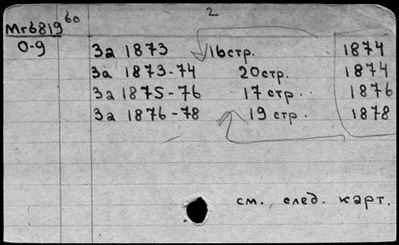 2
Мгб819 60
0-9
За 1873 16стр. 1874
За 1873-74 20стр. 1874
За 1875-76 17 стр. 1876
За 1876-78 19 стр. 1878
см. след. карт.